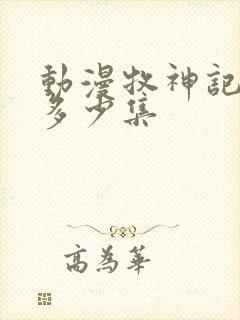 動漫牧神記
多少集
高為華